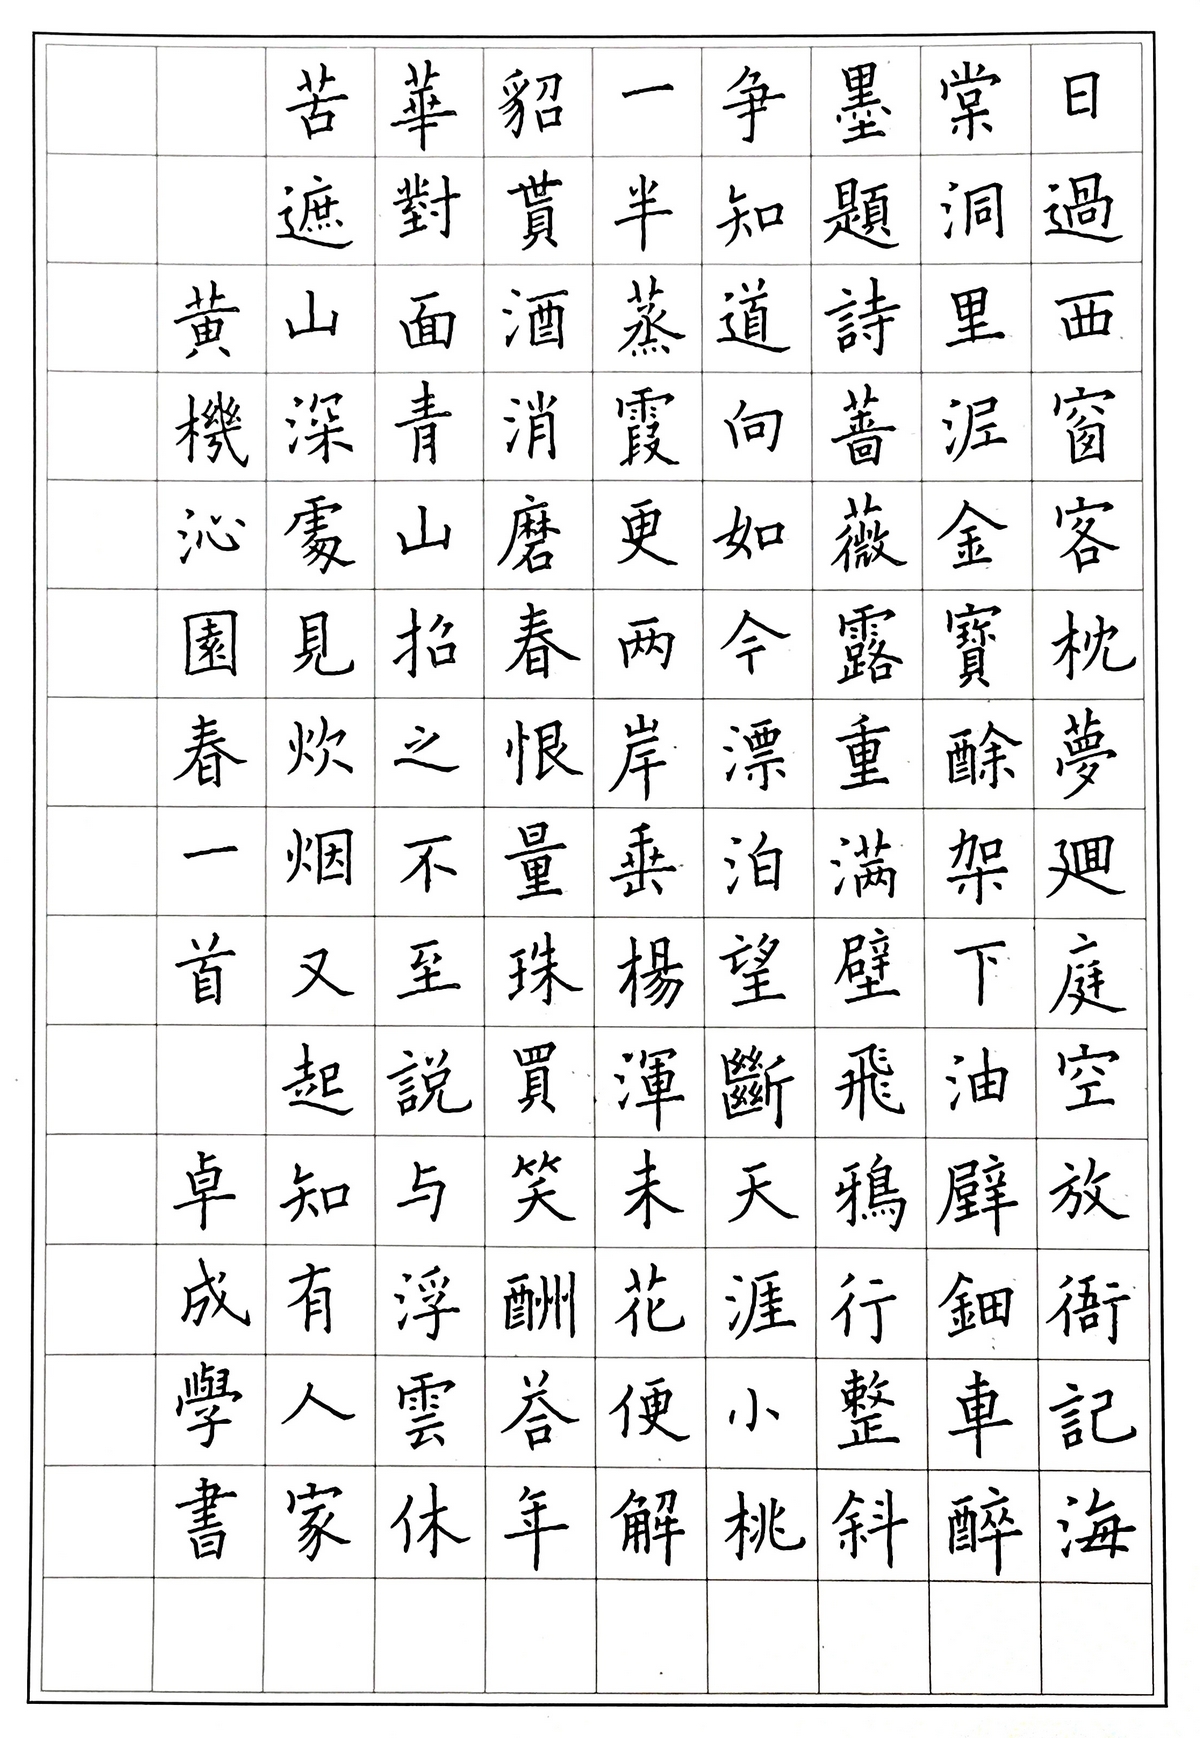 日過西窗客枕夢廻庭空放衙記海
棠洞里泥金寶酴架下油辟鈿車醉
墨題詩薔薇露重满壁飛鴉行整斜
争知道向如今漂泊望斷天涯小桃
一半蒸霞更两岸垂楊渾未花便解
貂貰酒消磨春恨量珠買笑酬荅年
華對面青山招之不至説与浮雲休
苦遮山深處見炊烟又起知有人家
黄機沁園春一首 卓成學書